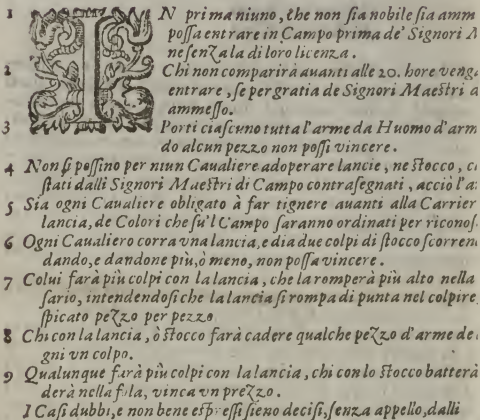 1 IN prima niuno, che non sia nobile sia amm
possa entrare in Campo prima de' Signori M
ne senza la di loro licenza.
2 Chi non comparirà auanti alle 20. hore veng
entrare, se per gratia de Signori Maestri a
ammesso.
3 Porti ciascuno tutta l'arme da Huomo d'arm
do alcun pezzo non possi vincere.
4 Non si possino per niun Caualiere adoperare lancie, ne stocco, c
stati dalli Signori Maestri di Campo contrasegnati, acciò l'a
5 Sia ogni Caualiere obligato à far tignere auanti alla Carrier
lancia, de Colori che su'l Campo saranno ordinati per riconos
6 Ogni Caualiero corra vna lancia, e dia due colpi di stocco scorren
dando, e dandone più, ò meno, non possa vincere.
7 Colui farà più colpi con la lancia, che la romperà più alto nella
sario, intendendosi che la lancia si rompa di punta nel colpire
spicato pezzo per pezzo
8 Chi con la lancia, ò stocco farà cadere qualche pezzo d'arme de
gni vn colpo.
9 Qualunque farà più colpi con la lancia, chi con lo stocco batterà
derà nella fola, vinca vn prezzo.
I Casi dubbi, e non bene espressi sieno decisi, senza appello, dalli